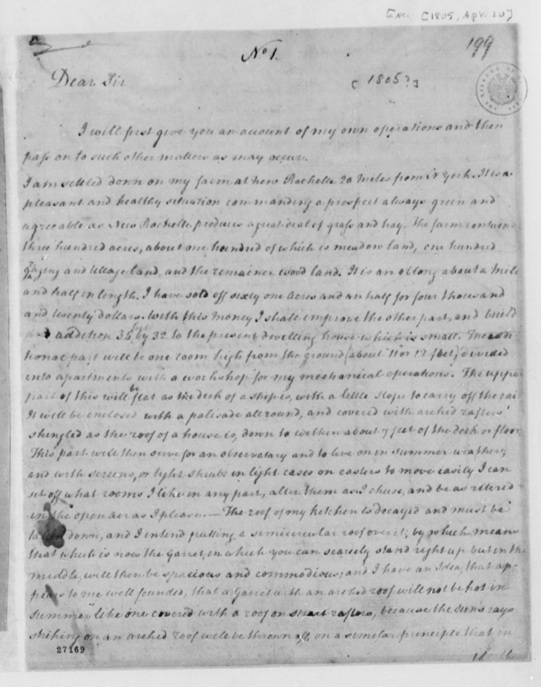 [Ms. [1805, Apr. 20]
No 1.
199
Dear Sir
[1805?]
I will first give you an account of my own operations and then
pass on to such other matters as may occur.
I am settled down on my farm at New Rochelle 20 miles from N York. It is a
pleasant and healthy situation commanding a prospect always green and
agreeable as New Rochelle produces a great deal of grass and hay. The farm contains
three hundred acres, about one hundred of which is meadow land, one hundred
grazing and tillage land, and the remainer wood land. It is an oblong about a mile
and half in length. I have sold off sixty one acres and an half for four thousand
and twenty dollars. With this money I shall improve the other part, and build
an addition 34 feet by 32 to the present dwelling house which is small. The addi
tional part will be one room high from the ground (about 11 or 12 feet) divided
into apartments with a work shop for my mechanical operations. The upper
part of this will be flat as the deck of a ship is, with a little slope to carry off the rain
It will be enclosed with a palisade all round, and covered with arched rafters
shingled as the roof of a house is, down to within about 7 feet of the deck or floor
This part will then serve for an observatory and to live on in summer weather,
and with screens, or light shrubs in light cases on casters to move easily I can
set off what rooms I like in any part, alter them as I chuse, and be as retired
in the open air as I please. — The roof of my kitchen is decayed and must be
taken down, and I intend putting a semicircular roof over it; by which means
that which is now the Garret, in which you can scarcely stand right up but in the
middle, will then be spacious and commodious; and I have an Idea, that ap
pears to me well founded, that a Garret with an arched roof will not be hot in
summer like one covered with a roof on strait rafters, because the sun's rays
striking on an arched roof will be thrown off, on a similar principle that in
27169